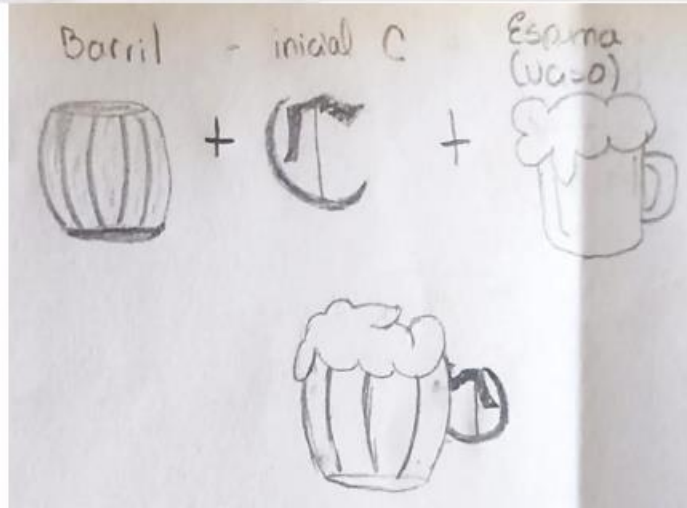 Barril - inicial C
Espuma
(vaso)
+ C +